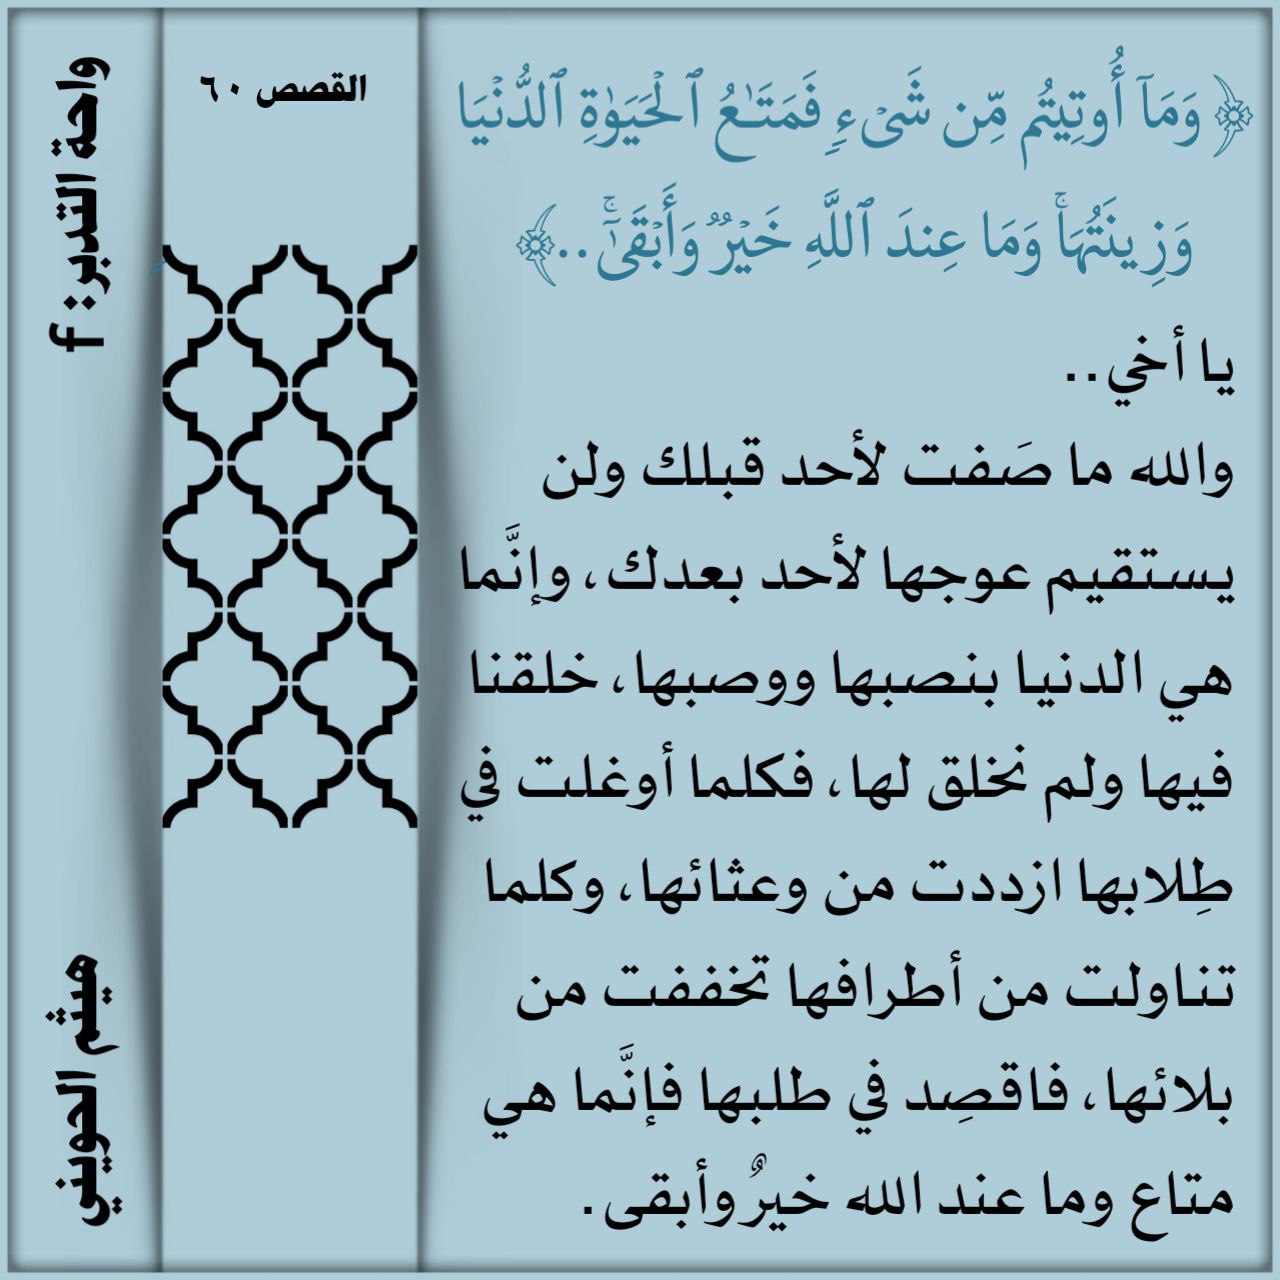 ﴿وَمَآ أُوتِيتُم مِّن شَىْءٍ فَمَتَـٰعُ ٱلْحَيَوٰةِ ٱلدُّنْيَا
وَزِينَتُهَاۚ وَمَا عِندَ ٱللَّهِ خَيْرٌ وَأَبْقَىٰٓۚ..﴾
يا أخي..
والله ما صَفت لأحد قبلك ولن
يستقيم عوجها لأحد بعدك، وإنَّما
هي الدنيا بنصبها ووصبها، خلقنا
فيها ولم نخلق لها، فكلما أوغلت في
طِلابها ازددت من وعثائها، وكلما
تناولت من أطرافها تخففت من
بلائها، فاقصِد في طلبها فإنَّما هي
متاع وما عند الله خيرٌ وأبقى.
القصص ٦٠
واحة التدبر: f
هيثم الحويني